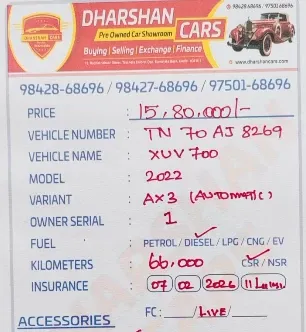 DHARSHAN CARS
Pre Owned Car Showroom
Buying | Selling | Exchange | Finance
98428 68696 / 97501 68696
www.dharshancars.com
98428-68696 / 98427-68696 / 97501-68696
PRICE : 15,80,000/-
VEHICLE NUMBER : TN 70 AJ 8269
VEHICLE NAME : XUV 700
MODEL : 2022
VARIANT : AX3 (AUTOMATIC)
OWNER SERIAL : 1
FUEL : PETROL / DIESEL / LPG / CNG / EV
KILOMETERS : 66,000 CSR / NSR
INSURANCE : 07 02 2026
FC : / LIVE /
ACCESSORIES